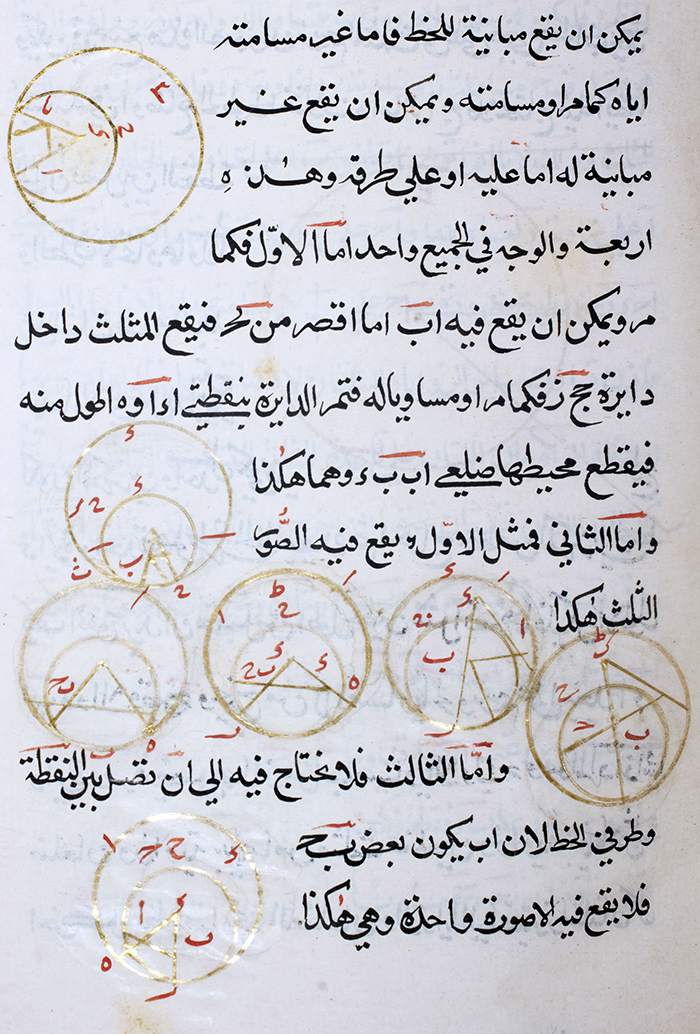 يمكن ان يقع مباينة للخط فاما غير مسامته
اياه كما مر او مسامته ويمكن ان يقع غير
مباينة له اما عليه او على طرفه وهذه
اربعة والوجه في الجميع واحد اما الاول فكما
مر ويمكن ان يقع فيه اب اما اقصر من فيقع المثلث داخل
دايرة فكما مر او مساويا له فتمر الدايرة بنقطتي او اطول منه
فيقطع محيطها ضلعي وهما هكذا
واما الثاني فمثل الاول يقع فيه الصُّور
الثلث هٰكذا
وامّا الثالث فلا نحتاج فيه الي ان نصل بين النقطة
وطرفي الخط لان اب يكون بعض بح
فلا يقع فيه الا صورة واحدة وهي هٰكذا